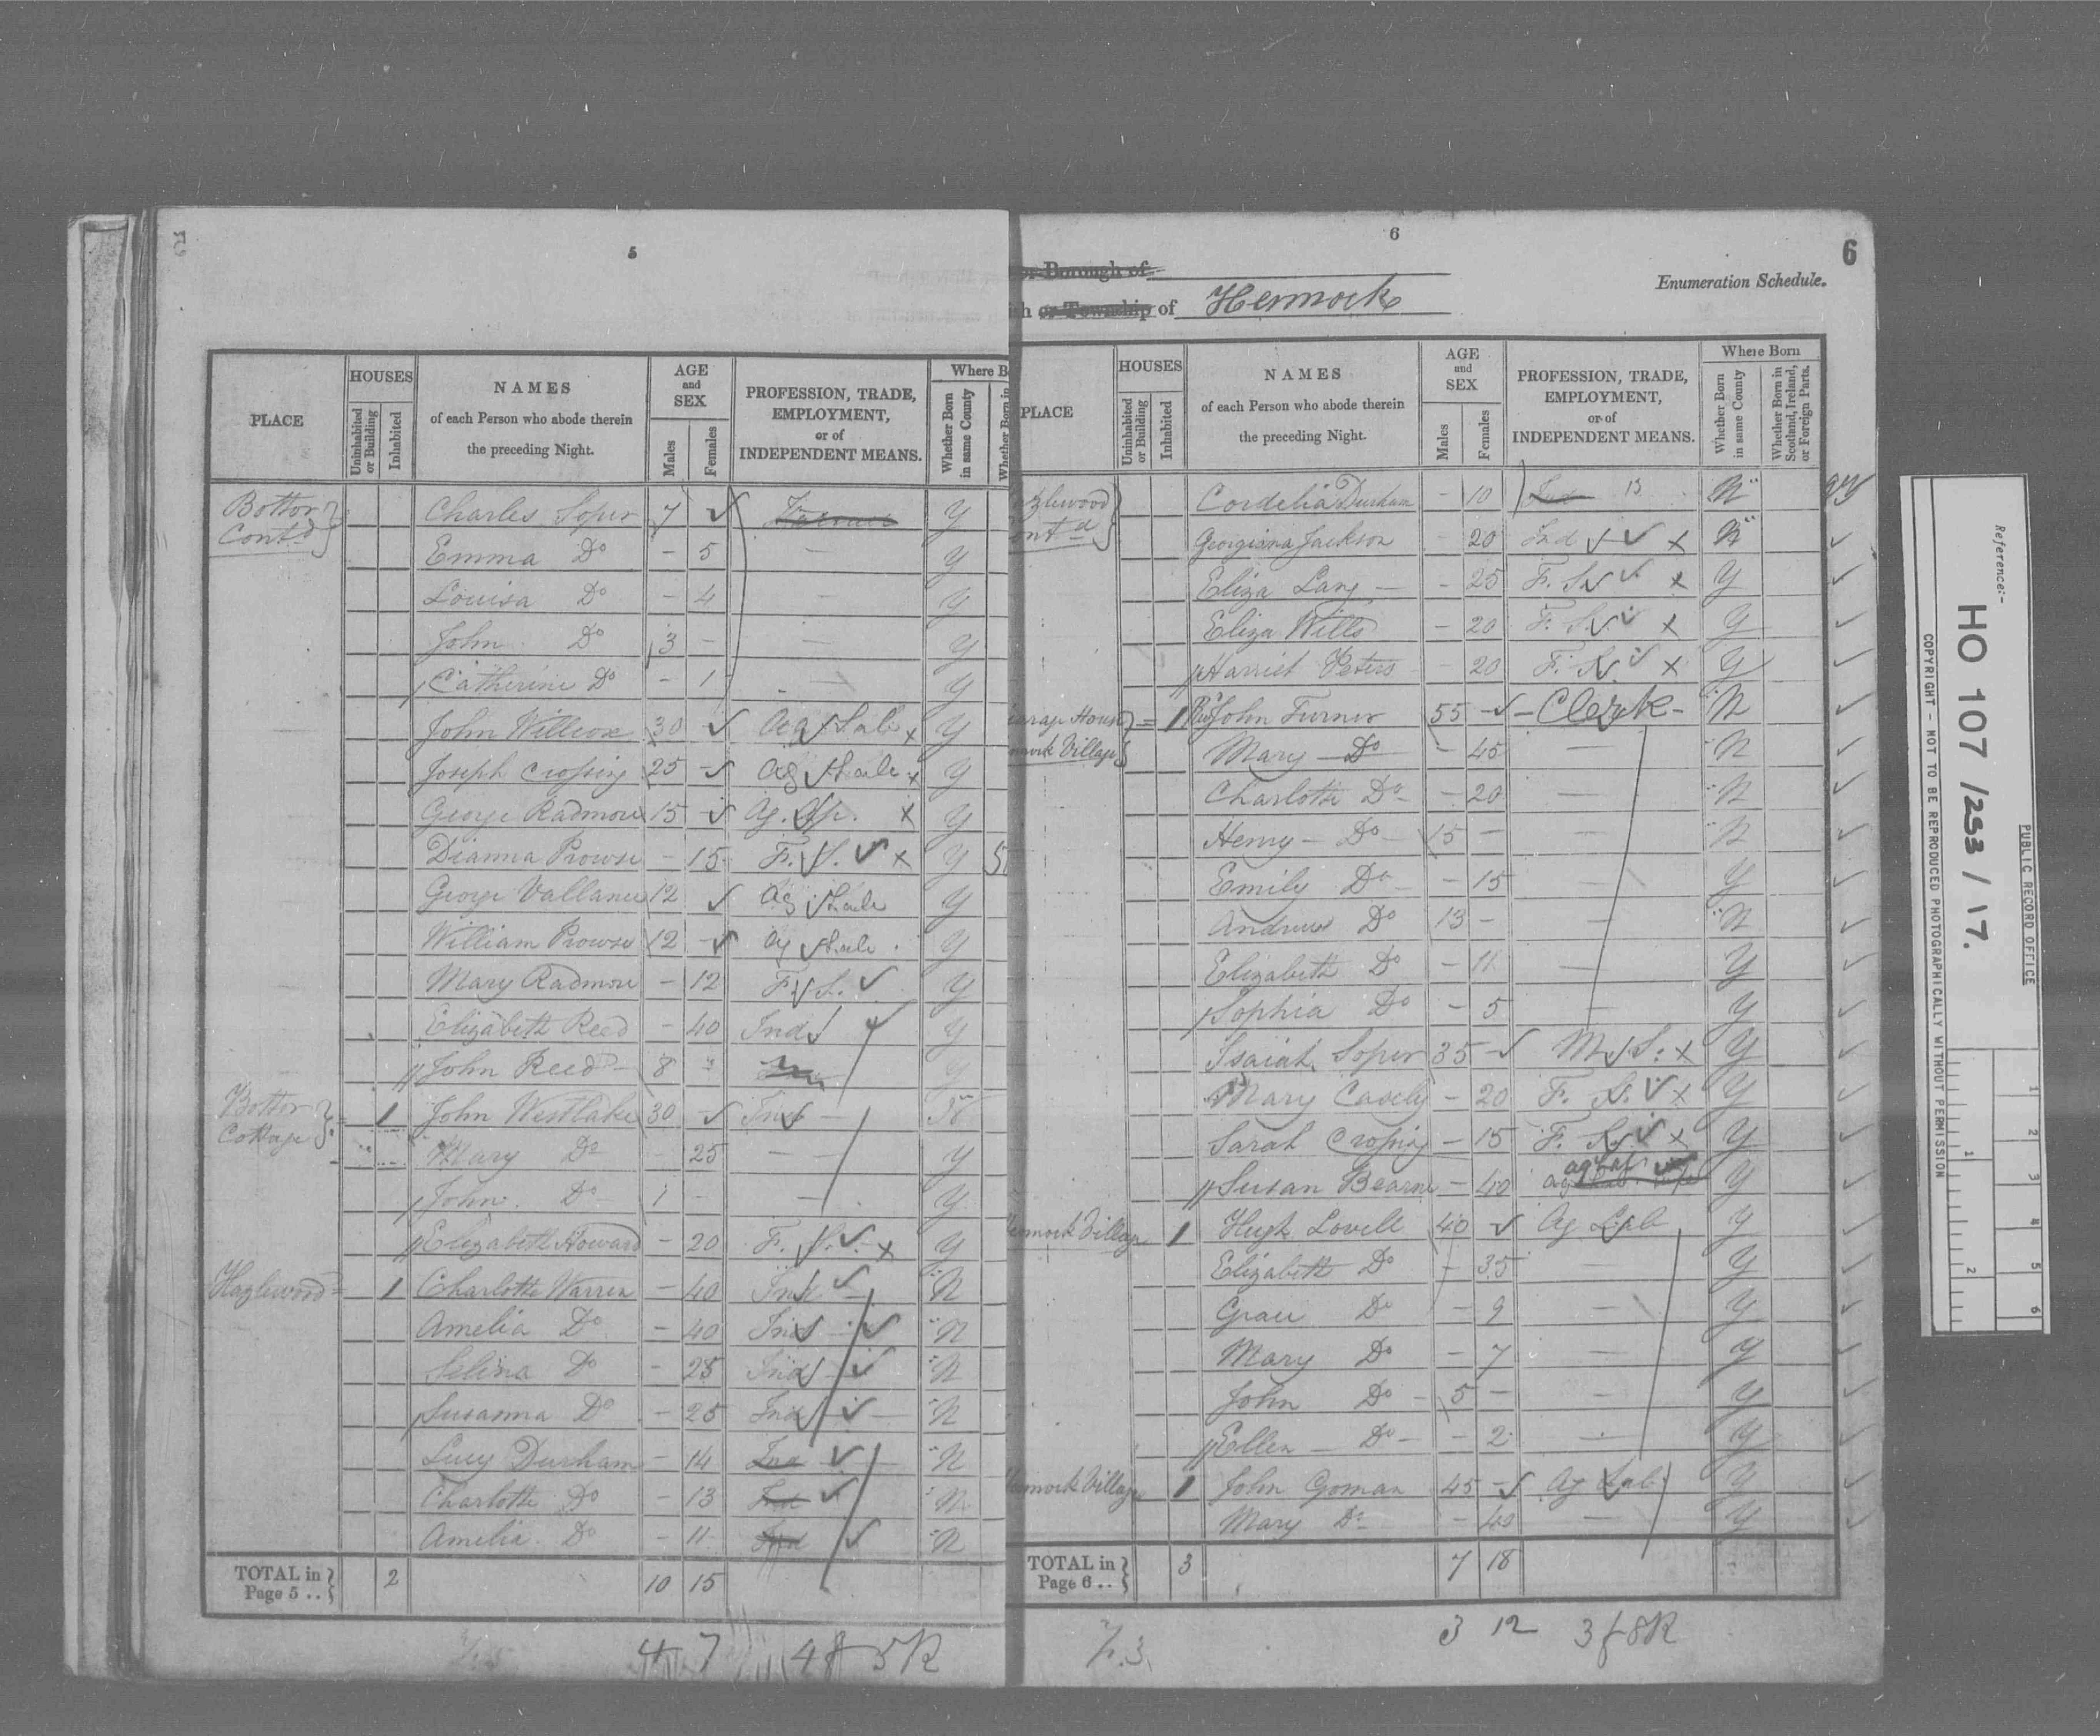 5
PLACE
HOUSES
Uninhabited or Building
Inhabited
NAMES
of each Person who abode therein
the preceding Night.
AGE and SEX
Males
Females
PROFESSION, TRADE,
EMPLOYMENT,
or of
INDEPENDENT MEANS.
Where B
Whether Born in same County
Whether Born in
Bottor Charles Soper 7 Y
Contd Emma Do - 5 Y
Louisa Do - 4 Y
John Do 3 - Y
Catherine Do - 1 Y
John Willcox 30 Ag Lab Y
Joseph Crossing 25 Ag Lab Y
George Radmore 15 Ag. Ap. Y
Dianna Prowse - 15 F. S. Y
George Vallance 12 Ag Lab Y
William Prowse 12 - Ag Lab Y
Mary Radmore - 12 F. S. Y
Elizabeth Reed - 40 Ind Y
John Reed 8 Y
Bottor Cottage 1 John Westlake 30 - Ind
Mary Do - 25 Y
John Do 1 - Y
Elizabeth Howard - 20 F. S. Y
Hazlewood 1 Charlotte Warren - 40 Ind N
Amelia Do - 40 Ind N
Selina Do - 25 Ind N
Susanna Do - 25 Ind N
Lucy Durham - 14 Ind N
Charlotte Do - 13 Ind N
Amelia Do - 11 Ind N
TOTAL in Page 5 .. 2 10 15
4 7
6
6
or Borough of
Enumeration Schedule.
or Township of Hennock
PLACE
HOUSES
Uninhabited or Building
Inhabited
NAMES
of each Person who abode therein
the preceding Night.
AGE and SEX
Males
Females
PROFESSION, TRADE,
EMPLOYMENT,
or of
INDEPENDENT MEANS.
Where Born
Whether Born in same County
Whether Born in Scotland, Ireland, or Foreign Parts.
zlewood Cordelia Durham - 10 Ind N
ontd Georgiana Jackson - 20 Ind N
Eliza Lang - 25 F. S. Y
Eliza Wills - 20 F. S. Y
Harriet Peters - 20 F. S. Y
carage House 1 Revd John Turner 55 - Clerk N
nock Village Mary Do - 45 N
Charlotte Do - 20 N
Henry Do 15 - N
Emily Do - 15 Y
Andrew Do 13 - N
Elizabeth Do - 11 Y
Sophia Do - 5 Y
Isaiah Soper 35 - M. S. Y
Mary Cavely - 20 F. S. Y
Sarah Crossing - 15 F. S. Y
Susan Bearne - 40 Y
ennock Village 1 Hugh Lovell 40 Ag Lab Y
Elizabeth Do - 35 Y
Grace Do - 9 Y
Mary Do - 7 Y
John Do 5 - Y
Ellen Do - 2 Y
ennock Village 1 John Goman 45 - Ag Lab Y
Mary Do - 40 Y
TOTAL in Page 6 .. 3 7 18
3 12
Reference:-
HO 107 / 253 / 17.
PUBLIC RECORD OFFICE
COPYRIGHT - NOT TO BE REPRODUCED PHOTOGRAPHICALLY WITHOUT PERMISSION
1 2 3 4 5 6
1 2